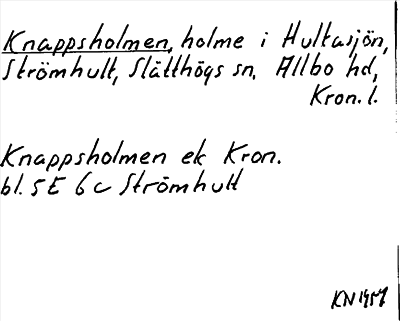 Knappsholmen, holme i Hultasjön,
Strömhult, Slätthögs sn, Allbo hd,
Kron. l.
Knappsholmen ek Kron.
bl. 5E 6c Strömhult
KN 1957